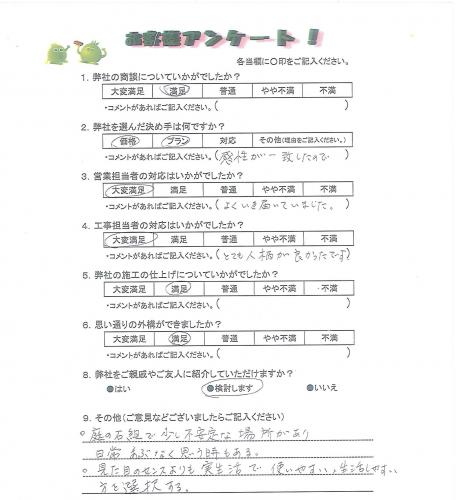 お客様アンケート！
各当欄に〇印をご記入ください。
1. 弊社の商談についていかがでしたか？
大変満足 満足 普通 やや不満 不満
・コメントがあればご記入ください。( )
2. 弊社を選んだ決め手は何ですか？
価格 プラン 対応 その他(理由をご記入ください。)
・コメントがあればご記入ください。(感性が一致したので)
3. 営業担当者の対応はいかがでしたか？
大変満足 満足 普通 やや不満 不満
・コメントがあればご記入ください。(よくいき届いていました。)
4. 工事担当者の対応はいかがでしたか？
大変満足 満足 普通 やや不満 不満
・コメントがあればご記入ください。(とても人柄が良かったです)
5. 弊社の施工の仕上げについていかがでしたか？
大変満足 満足 普通 やや不満 不満
・コメントがあればご記入ください。( )
6. 思い通りの外構ができましたか？
大変満足 満足 普通 やや不満 不満
・コメントがあればご記入ください。( )
8. 弊社をご親戚やご友人に紹介していただけますか？
●はい ●検討します ●いいえ
9. その他(ご意見などございましたらご記入ください)
○庭の石組で少し不安定な場所があり
日常あぶなく思う時もある。
○見た目のセンスよりも実生活で使いやすい、生活しやすい
方を選択する。